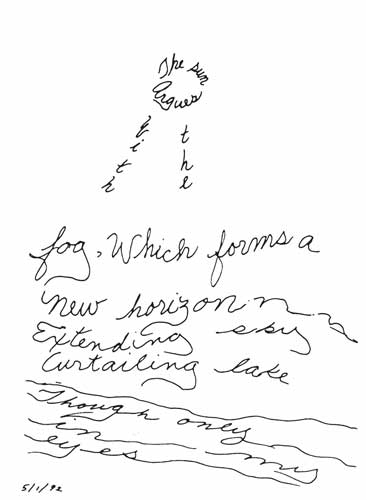 The sun
Argues
with
the
fog, Which forms a
new horizon
Extending sky
Curtailing lake
Though only
in my
eyes
5/1/92